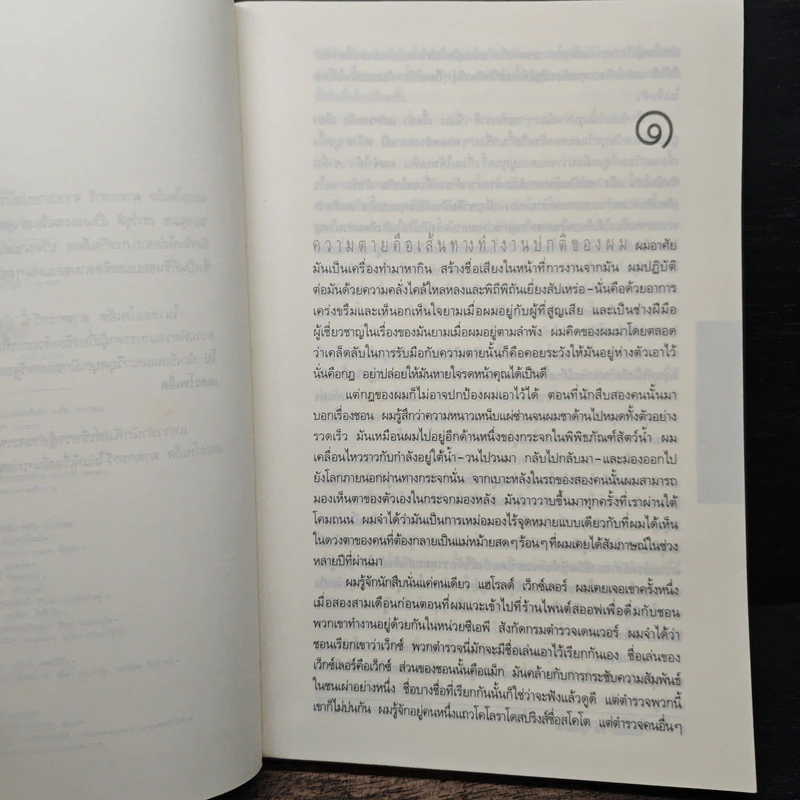 ๑
ความตายคือเส้นทางทำงานปกติของผม ผมอาศัย
มันเป็นเครื่องทำมาหากิน สร้างชื่อเสียงในหน้าที่การงานจากมัน ผมปฏิบัติ
ต่อมันด้วยความคลั่งไคล้ใหลหลงและพิถีพิถันเยี่ยงสัปเหร่อ-นั่นคือด้วยอาการ
เคร่งขรึมและเห็นอกเห็นใจยามเมื่อผมอยู่กับผู้ที่สูญเสีย และเป็นช่างฝีมือ
ผู้เชี่ยวชาญในเรื่องของมันยามเมื่อผมอยู่ตามลำพัง ผมคิดของผมมาโดยตลอด
ว่าเคล็ดลับในการรับมือกับความตายนั้นก็คือคอยระวังให้มันอยู่ห่างตัวเอาไว้
นั่นคือกฎ อย่าปล่อยให้มันหายใจรดหน้าคุณได้เป็นดี
แต่กฎของผมก็ไม่อาจปกป้องผมเอาไว้ได้ ตอนที่นักสืบสองคนนั้นมา
บอกเรื่องชอน ผมรู้สึกว่าความหนาวเหน็บแผ่ซ่านจนผมชาด้านไปหมดทั้งตัวอย่าง
รวดเร็ว มันเหมือนผมไปอยู่อีกด้านหนึ่งของกระจกในพิพิธภัณฑ์สัตว์น้ำ ผม
เคลื่อนไหวราวกับกำลังอยู่ใต้น้ำ-วนไปวนมา กลับไปกลับมา-และมองออกไป
ยังโลกภายนอกผ่านทางกระจกนั่น จากเบาะหลังในรถของสองคนนั้นผมสามารถ
มองเห็นตาของตัวเองในกระจกมองหลัง มันวาววาบขึ้นมาทุกครั้งที่เราผ่านใต้
โคมถนน ผมจำได้ว่ามันเป็นการเหม่อมองไร้จุดหมายแบบเดียวกับที่ผมได้เห็น
ในดวงตาของคนที่ต้องกลายเป็นแม่หม้ายสดๆร้อนๆที่ผมเคยได้สัมภาษณ์ในช่วง
หลายปีที่ผ่านมา
ผมรู้จักนักสืบนั่นแค่คนเดียว แฮโรลด์ เว็กซ์เลอร์ ผมเคยเจอเขาครั้งหนึ่ง
เมื่อสองสามเดือนก่อนตอนที่ผมแวะเข้าไปที่ร้านไพนต์สออฟเพื่อดื่มกับชอน
พวกเขาทำงานอยู่ด้วยกันในหน่วยซีเอพี สังกัดกรมตำรวจเดนเวอร์ ผมจำได้ว่า
ชอนเรียกเขาว่าเว็กซ์ พวกตำรวจนี่มักจะมีชื่อเล่นเอาไว้เรียกกันเอง ชื่อเล่นของ
เว็กซ์เลอร์คือเว็กซ์ ส่วนของชอนนั้นคือแม็ก มันคล้ายกับการกระชับความสัมพันธ์
ในชนเผ่าอย่างหนึ่ง ชื่อบางชื่อที่เรียกกันนั้นก็ใช่ว่าจะฟังแล้วดูดี แต่ตำรวจพวกนี้
เขาก็ไม่บ่นกัน ผมรู้จักอยู่คนหนึ่งแถวโคโลราโดสปริงส์ชื่อสโคโต แต่ตำรวจคนอื่นๆ